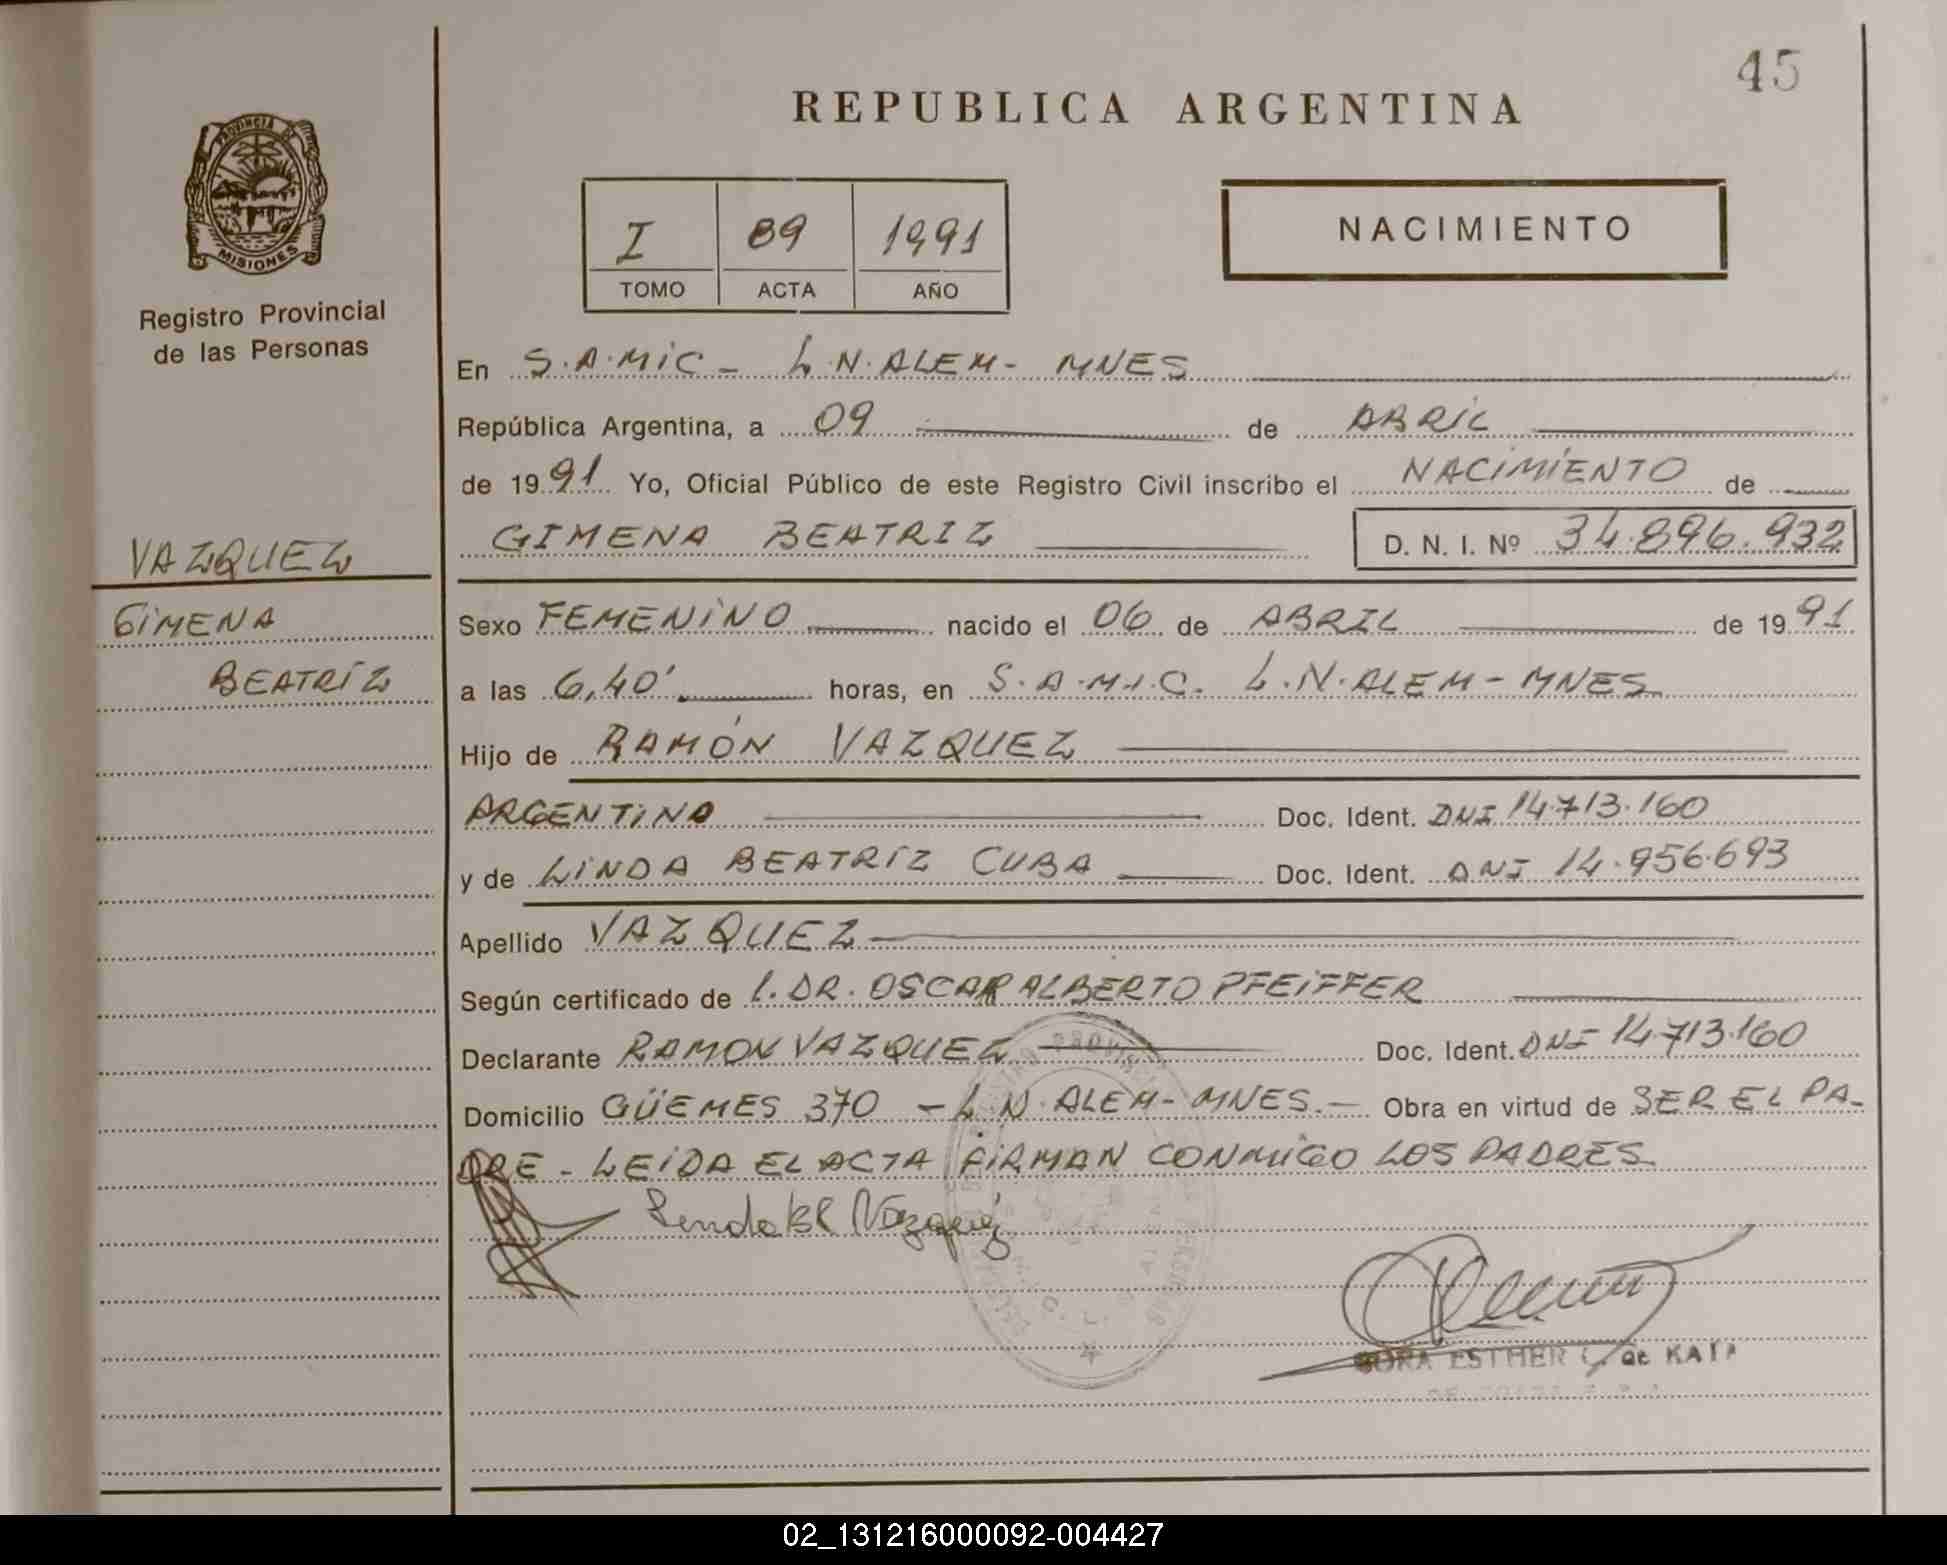 45
REPUBLICA ARGENTINA
PROVINCIA DE
MISIONES
Registro Provincial
de las Personas
I 89 1991
TOMO ACTA AÑO
NACIMIENTO
En S.A.MIC - L.N.ALEM - MNES
República Argentina, a 09 de ABRIL
de 1991 Yo, Oficial Público de este Registro Civil inscribo el NACIMIENTO de
GIMENA BEATRIZ D. N. I. Nº 34.896.932
VAZQUEZ
GIMENA
BEATRÍZ
Sexo FEMENINO nacido el 06 de ABRIL de 1991
a las 6,40' horas, en S.A.M.I.C. L.N.ALEM - MNES
Hijo de RAMÓN VAZQUEZ
ARGENTINO Doc. Ident. DNI 14.713.160
y de LINDA BEATRÍZ CUBA Doc. Ident. DNI 14.956.693
Apellido VAZQUEZ
Según certificado de l. DR. OSCAR ALBERTO PFEIFFER
Declarante RAMON VAZQUEZ Doc. Ident. DNI 14.713.160
Domicilio GÜEMES 370 - L.N.ALEM - MNES.- Obra en virtud de SER EL PA-
DRE - LEIDA EL ACTA FIRMAN CONMIGO LOS PADRES
ESTHER C. de
02_131216000092-004427